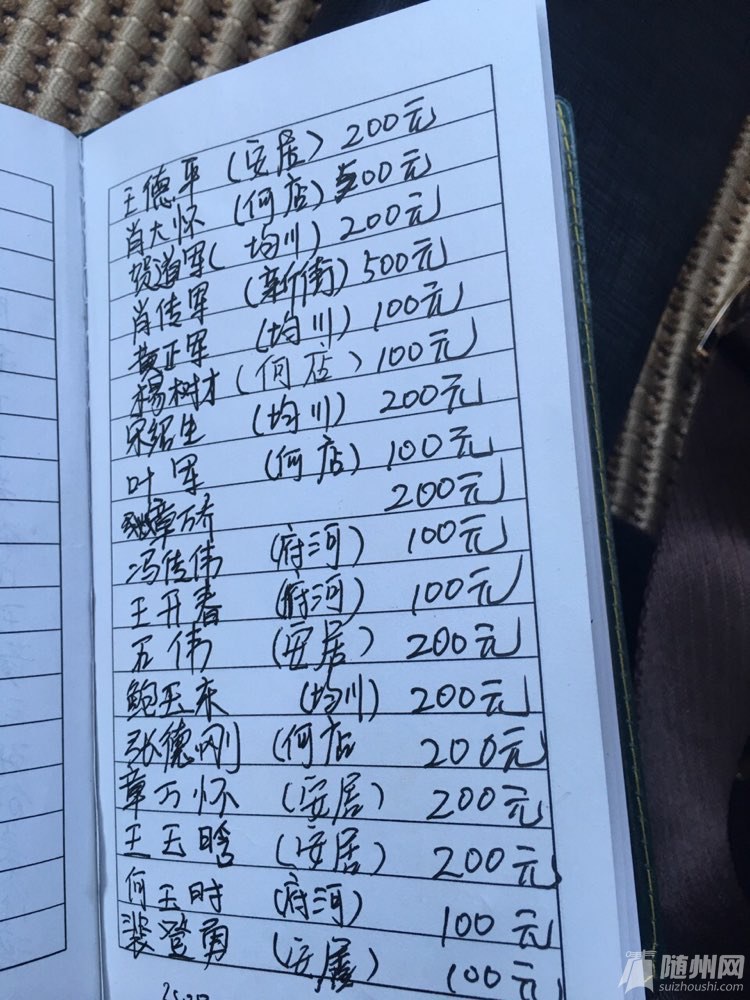 王德平 (安居) 200元
肖大怀 (何店) 500元
贺道军 (均川) 200元
肖传军 (新街) 500元
黄正军 (均川) 100元
杨树才 (何店) 100元
宋绍生 (均川) 200元
叶军 (何店) 100元
章万乔 200元
冯传伟 (府河) 100元
王开春 (府河) 100元
万伟 (安居) 200元
鲍玉东 (均川) 200元
张德刚 (何店 200元
章万怀 (安居) 200元
王玉晗 (安居) 200元
何玉时 (府河) 100元
裴登勇 (安居) 100元
随州网
suizhoushi.com